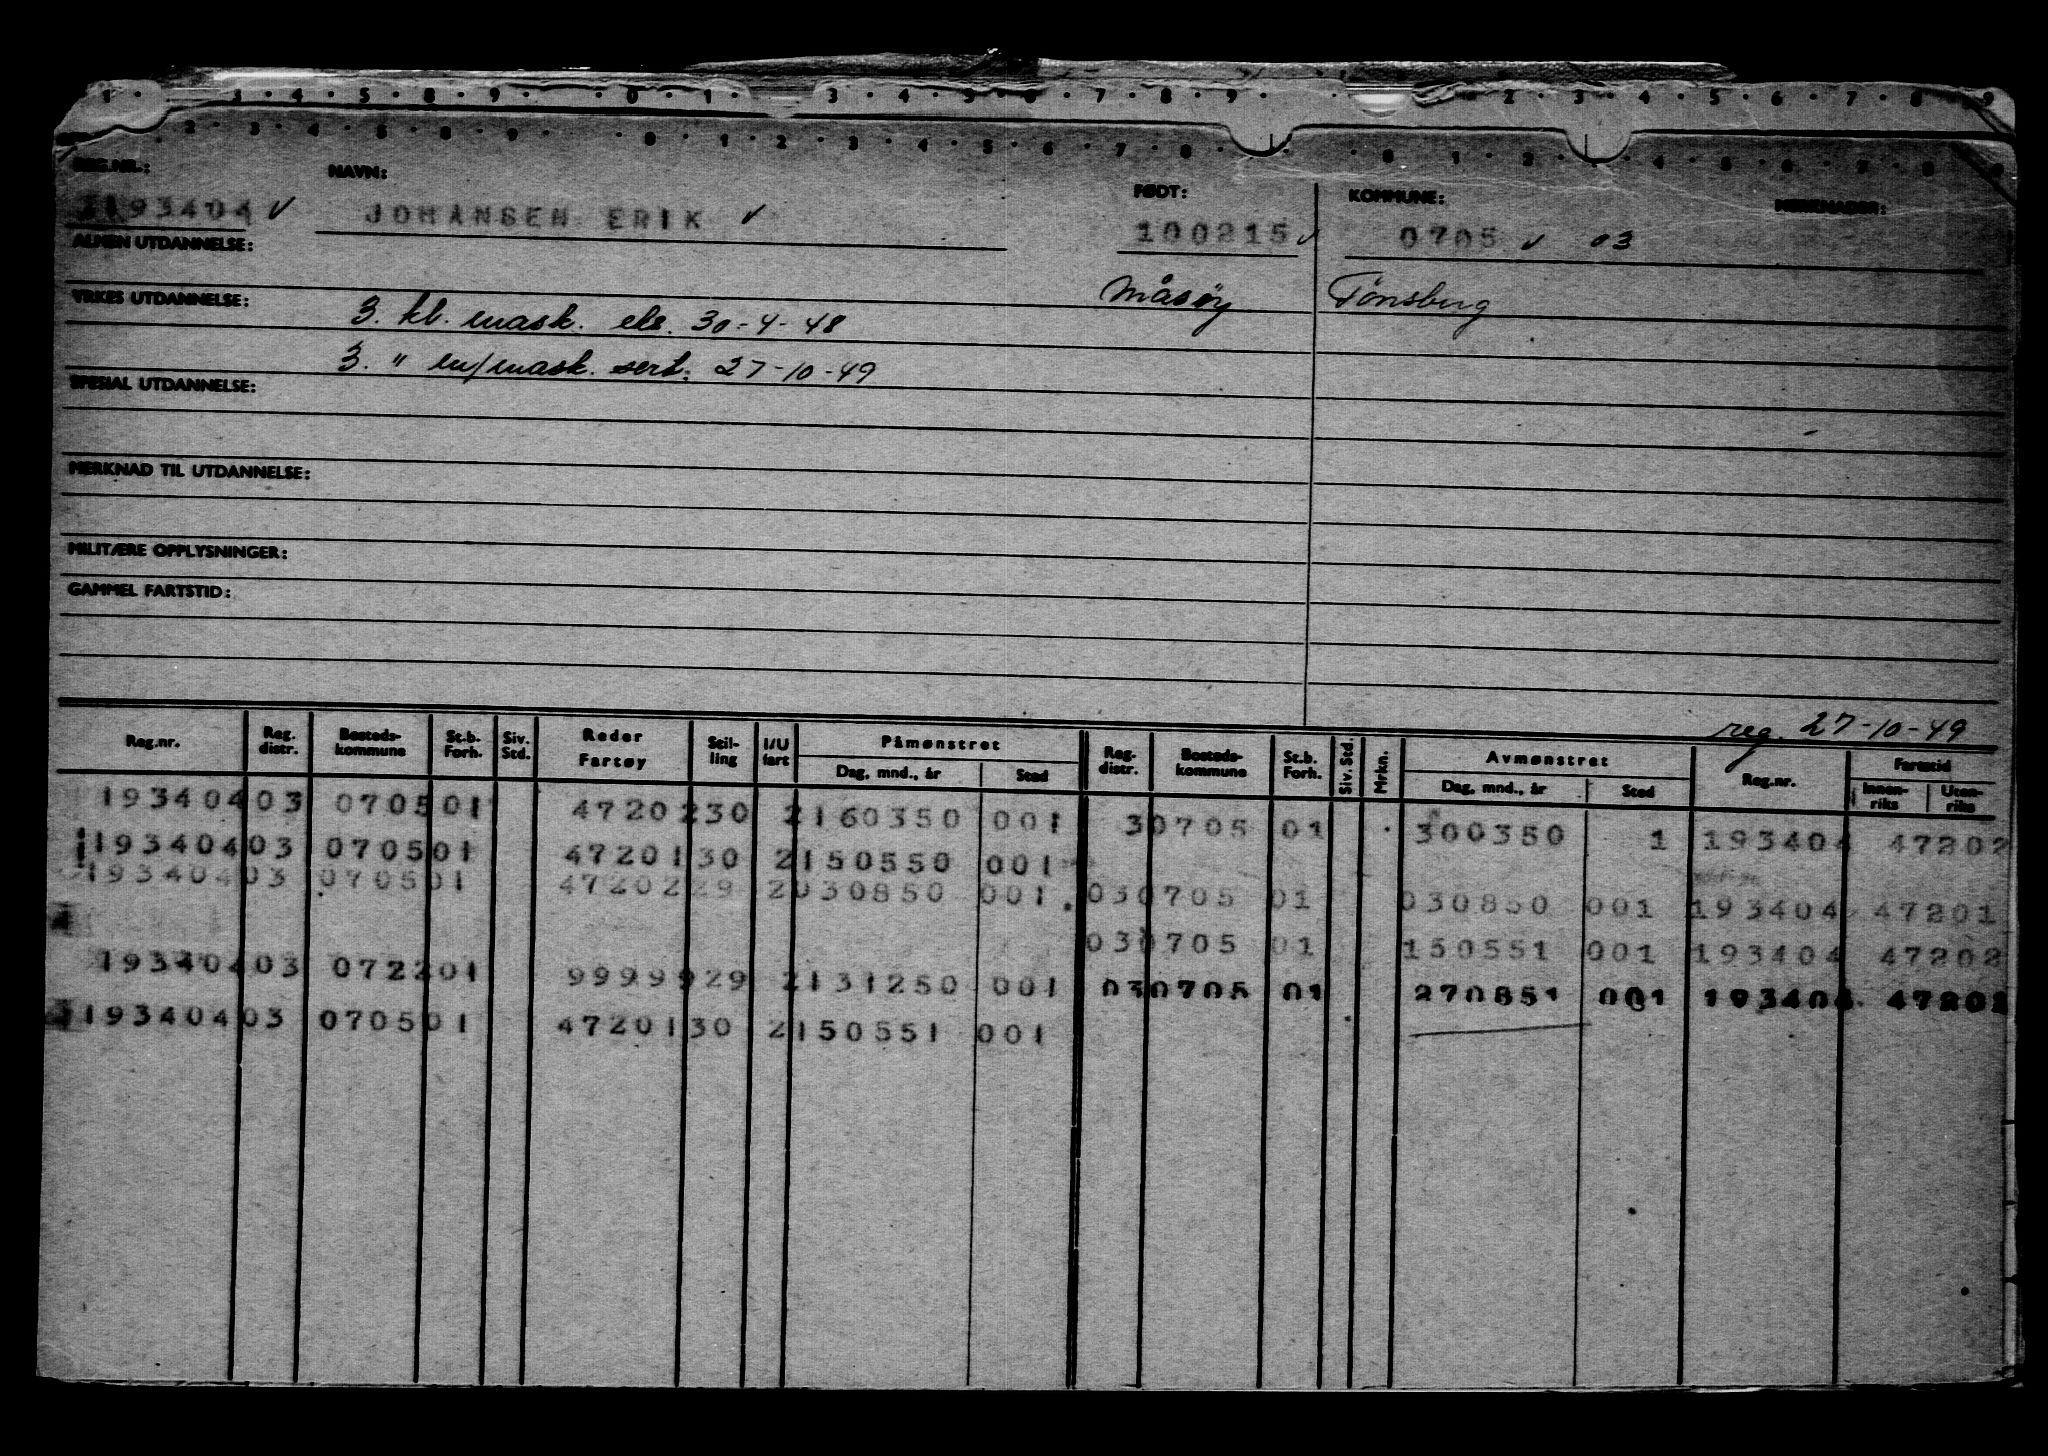 1 · 3 · 4 · 5 · 8 · 9 · · 0 · 1 · 3 · 4 · 5 · 6 · 7 · 8 · 9 · · 2 · 3 · 4 · 5 · 6 · 7 · 8 · 9
2 · 3 · 4 · 5 · 8 · 9 · · 0 · 1 · 2 · 3 · 4 · 5 · 6 · 7 · 8 · · · 0 · 1 · 2 · · 4 · 5 · 6 · 7 · 8 · 9
REG.NR.: NAVN: FØDT: KOMMUNE: MERKNADER:
193404 ✓ JOHANSEN ERIK ✓ 100215 ✓ 0705 ✓ 03
ALMEN UTDANNELSE:
Måsøy Tönsberg
YRKES UTDANNELSE: 3. kl. mask. eks. 30-4-48
3. " m/mask. sert. 27-10-49
SPESIAL UTDANNELSE:
MERKNAD TIL UTDANNELSE:
MILITÆRE OPPLYSNINGER:
GAMMEL FARTSTID:
reg. 27-10-49
Reg.nr. Reg. distr. Bosteds-kommune St.b. Forh. Siv. Std. Reder Fartøy Stil-ling I/U fart Påmønstret Dag, mnd., år Sted Reg. distr. Bosteds-kommune St.b. Forh. Siv. Std. Mrkn. Avmønstret Dag, mnd., år Sted Reg.nr. Fartstid Innen-riks Uten-riks
193404 03 0705 01 47202 30 2 160350 001 3 0705 01 300350 1 193404 47202
193404 03 0705 01 47201 30 2 150550 001
193404 03 0705 01 47202 29 2 030850 001 03 0705 01 030850 001 193404 47201
03 0705 01 150551 001 193404 47202
193404 03 0722 01 99999 29 2 131250 001 03 0705 01 270851 001 193404 47202
193404 03 0705 01 47201 30 2 150551 001